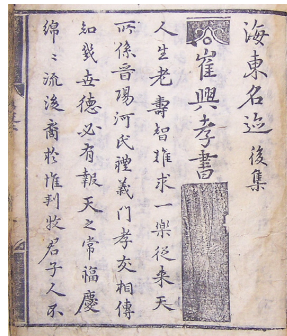 海東名迹 後集
崔興孝書
人生老壽智難求一樂從來天
所係晉陽河氏禮義門孝友相傳
知幾世德必有報天之常福慶
綿〻流後裔於惟判牧君子人不